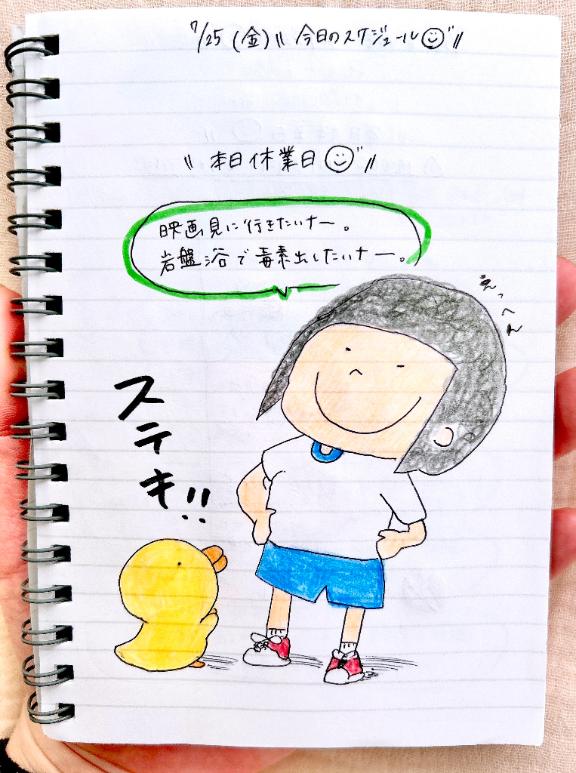 7/25(金)〃 今日のスケジュール☺〃
〃 本日休業日☺〃
映画見に行きたいナー。
岩盤浴で毒素出したいナー。
えっへん
ステキ!!